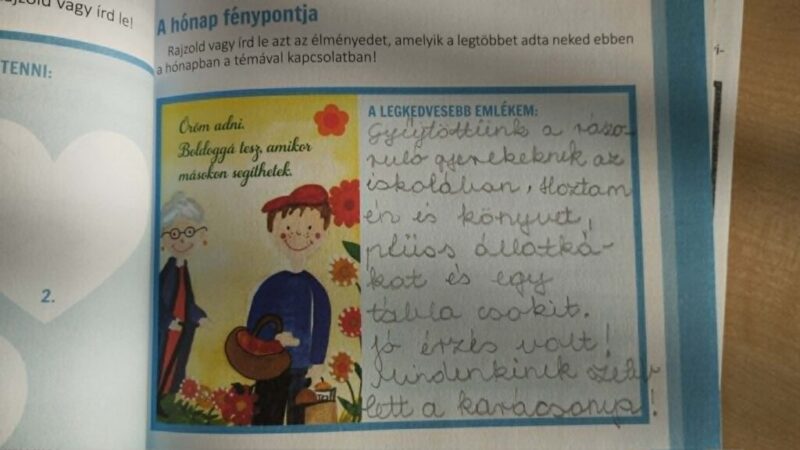 rajzold vagy írd le!
TENNI:
2.
A hónap fénypontja
Rajzold vagy írd le azt az élményedet, amelyik a legtöbbet adta neked ebben
a hónapban a témával kapcsolatban!
Öröm adni.
Boldoggá tesz, amikor
másokon segíthetek.
A LEGKEDVESEBB EMLÉKEM:
Gyűjtöttünk a rászo-
ruló gyerekeknek az
iskolában, Hoztam
én is könyvet,
plüss állatká-
kat és egy
tábla csokit.
Jó érzés volt!
Mindenkinek szebb
lett a karácsonya!